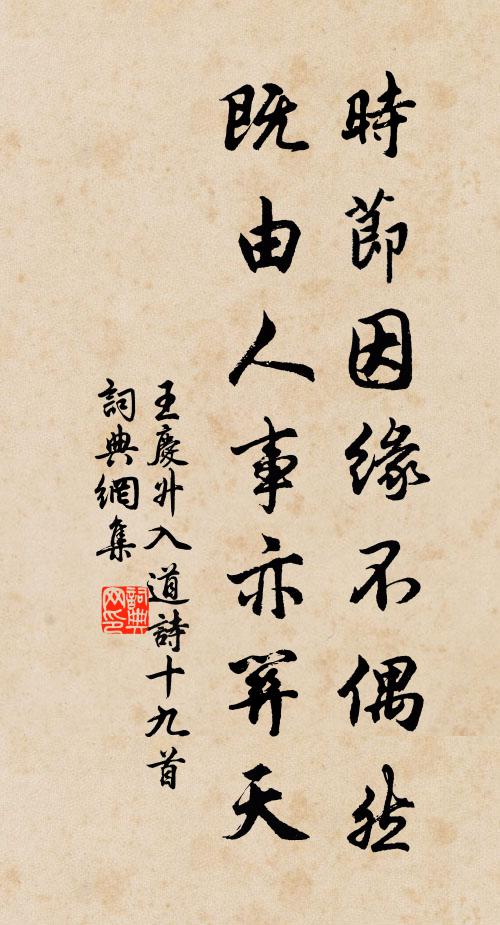 時節因緣不偶然
既由人事亦關天
王慶升入道詩十九首
詞典網集
詞典
网印